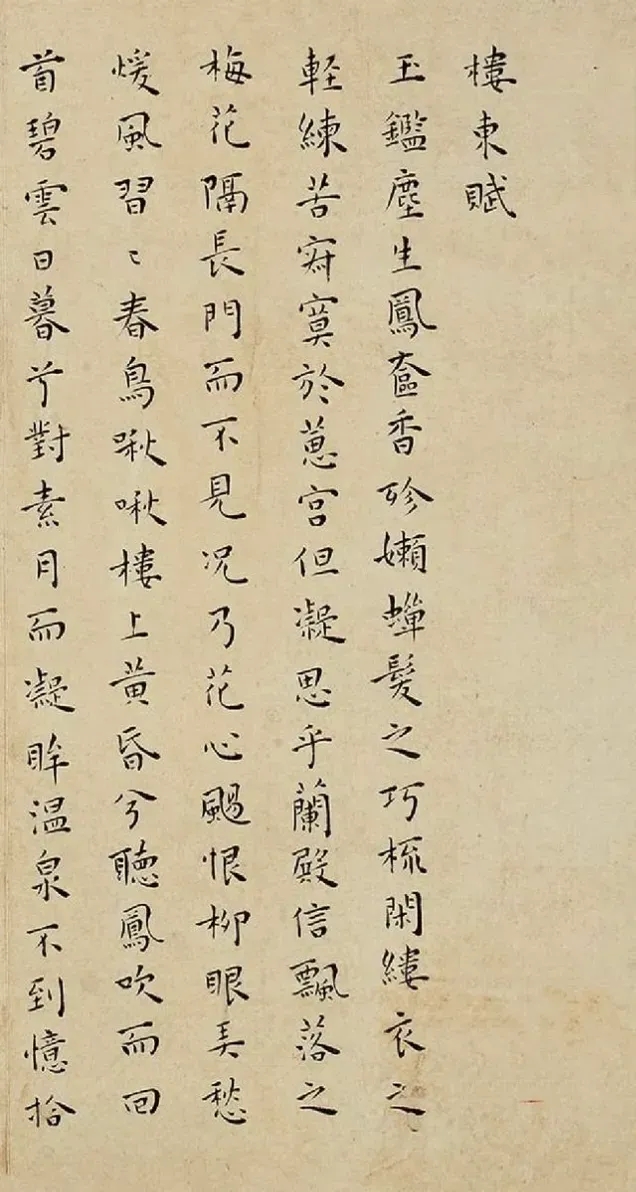 樓東賦
玉鑑塵生鳳奩香殄嬾蟬髮之巧梳閑縷衣之
輕練苦寂寞於蕙宮但凝思乎蘭殿信飄落之
梅花隔長門而不見况乃花心颺恨柳眼弄愁
煖風習〻春鳥啾啾樓上黃昏兮聽鳳吹而回
首碧雲日暮兮對素月而凝眸溫泉不到憶拾